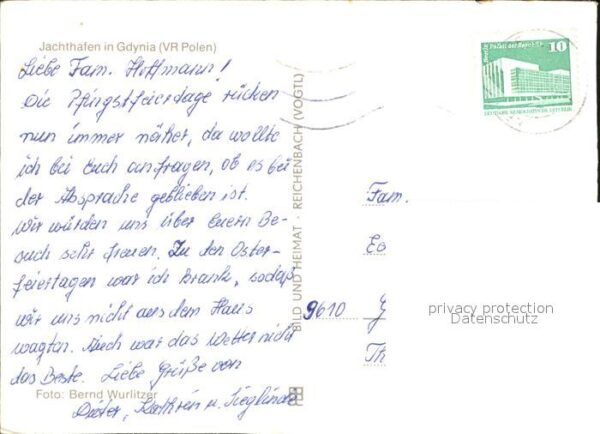 Jachthafen in Gdynia (VR Polen)
Liebe Fam. Hoffmann!
Die Pfingstfeierdage rücken
nun immer näher, da wollte
ich bei Euch anfragen, ob es bei
der Absprache geblieben ist.
Wir würden uns über Euern Be-
such sehr freuen. Zu den Oster-
feiertagen war ich krank, sodaß
wir uns nicht aus dem Haus
wagten. Auch war das Wetter nicht
das Beste. Liebe Grüße von
Dieter, Kathrein u. Sieglinde
Foto: Bernd Wurlitzer
BILD UND HEIMAT · REICHENBACH (VOGTL)
Berlin, Palast der Republik
10
DEUTSCHE DEMOKRATISCHE REPUBLIK
Fam.
9610
Th
privacy protection
Datenschutz